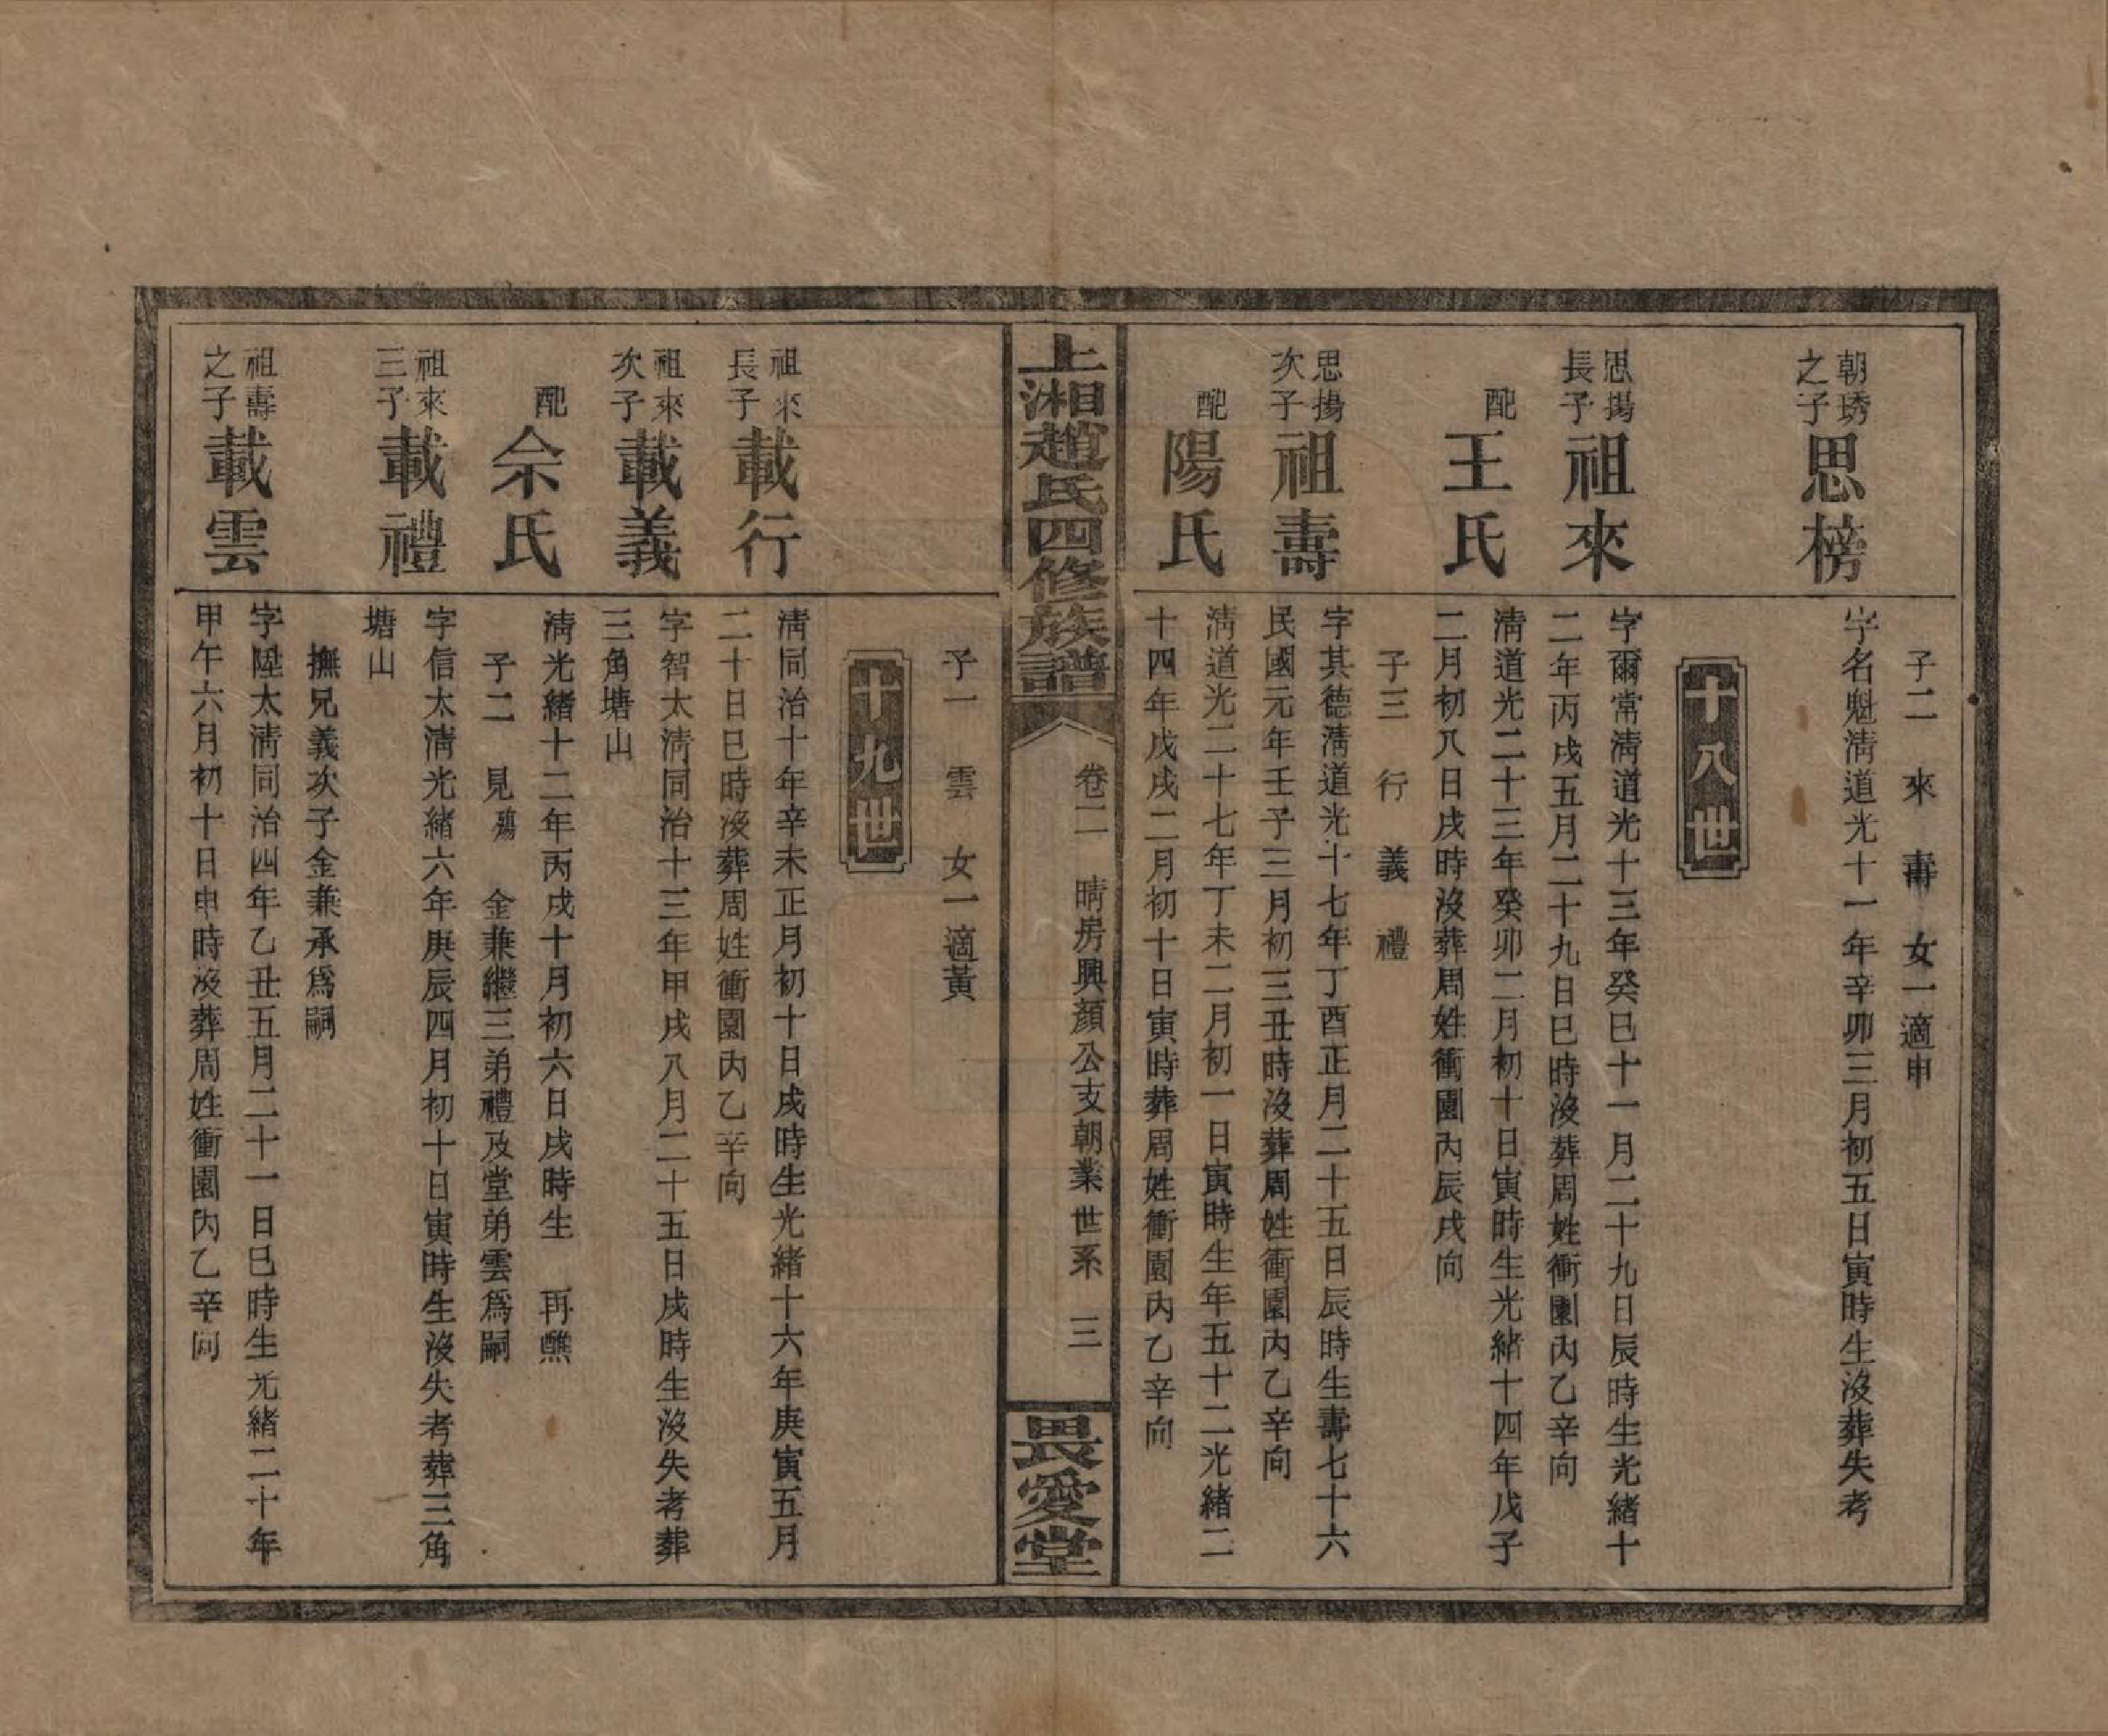 子二　來　壽　女一適申
朝琇
之子
思榜
字名魁淸道光十一年辛卯三月初五日寅時生沒葬失考
十八世
思揚
長子
祖來
字爾常淸道光十三年癸巳十一月二十九日辰時生光緒十
二年丙戌五月二十九日巳時沒葬周姓衝園內乙辛向
配
王氏
淸道光二十三年癸卯二月初十日寅時生光緒十四年戊子
二月初八日戌時沒葬周姓衝園內辰戌向
子三　行　義　禮
思揚
次子
祖壽
字其德淸道光十七年丁酉正月二十五日辰時生壽七十六
民國元年壬子三月初三丑時沒葬周姓衝園內乙辛向
配
陽氏
淸道光二十七年丁未二月初一日寅時生年五十二光緒二
十四年戊戌二月初十日寅時葬周姓衝園內乙辛向
上湘趙氏四修族譜
卷二　晴房興顏公支朝業世系　三
畏愛堂
子一　雲　女一適黃
十九世
祖來
長子
載行
淸同治十年辛未正月初十日戌時生光緒十六年庚寅五月
二十日巳時沒葬周姓衝園內乙辛向
祖來
次子
載義
字智太淸同治十三年甲戌八月二十五日戌時生沒失考葬
三角塘山
配
余氏
淸光緒十二年丙戌十月初六日戌時生　再醮
子二　見殤　金兼繼三弟禮及堂弟雲爲嗣
祖來
三子
載禮
字信太淸光緒六年庚辰四月初十日寅時生沒失考葬三角
塘山
撫兄義次子金兼承爲嗣
祖壽
之子
載雲
字陞太淸同治四年乙丑五月二十一日巳時生光緒二十年
甲午六月初十日申時沒葬周姓衝園內乙辛向